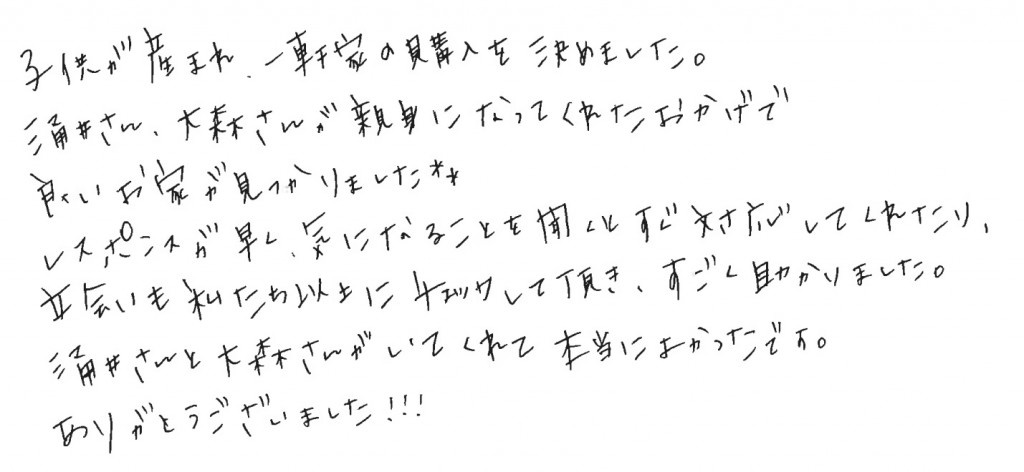 子供が産まれ、一軒家の購入を決めました。
涌井さん、大森さんが親身になってくれたおかげで
良いお家が見つかりました**
レスポンスが早く、気になることを聞くとすぐ対応してくれたり、
立会いも私たち以上にチェックして頂き、すごく助かりました。
涌井さんと大森さんがいてくれて本当によかったです。
ありがとうございました!!!